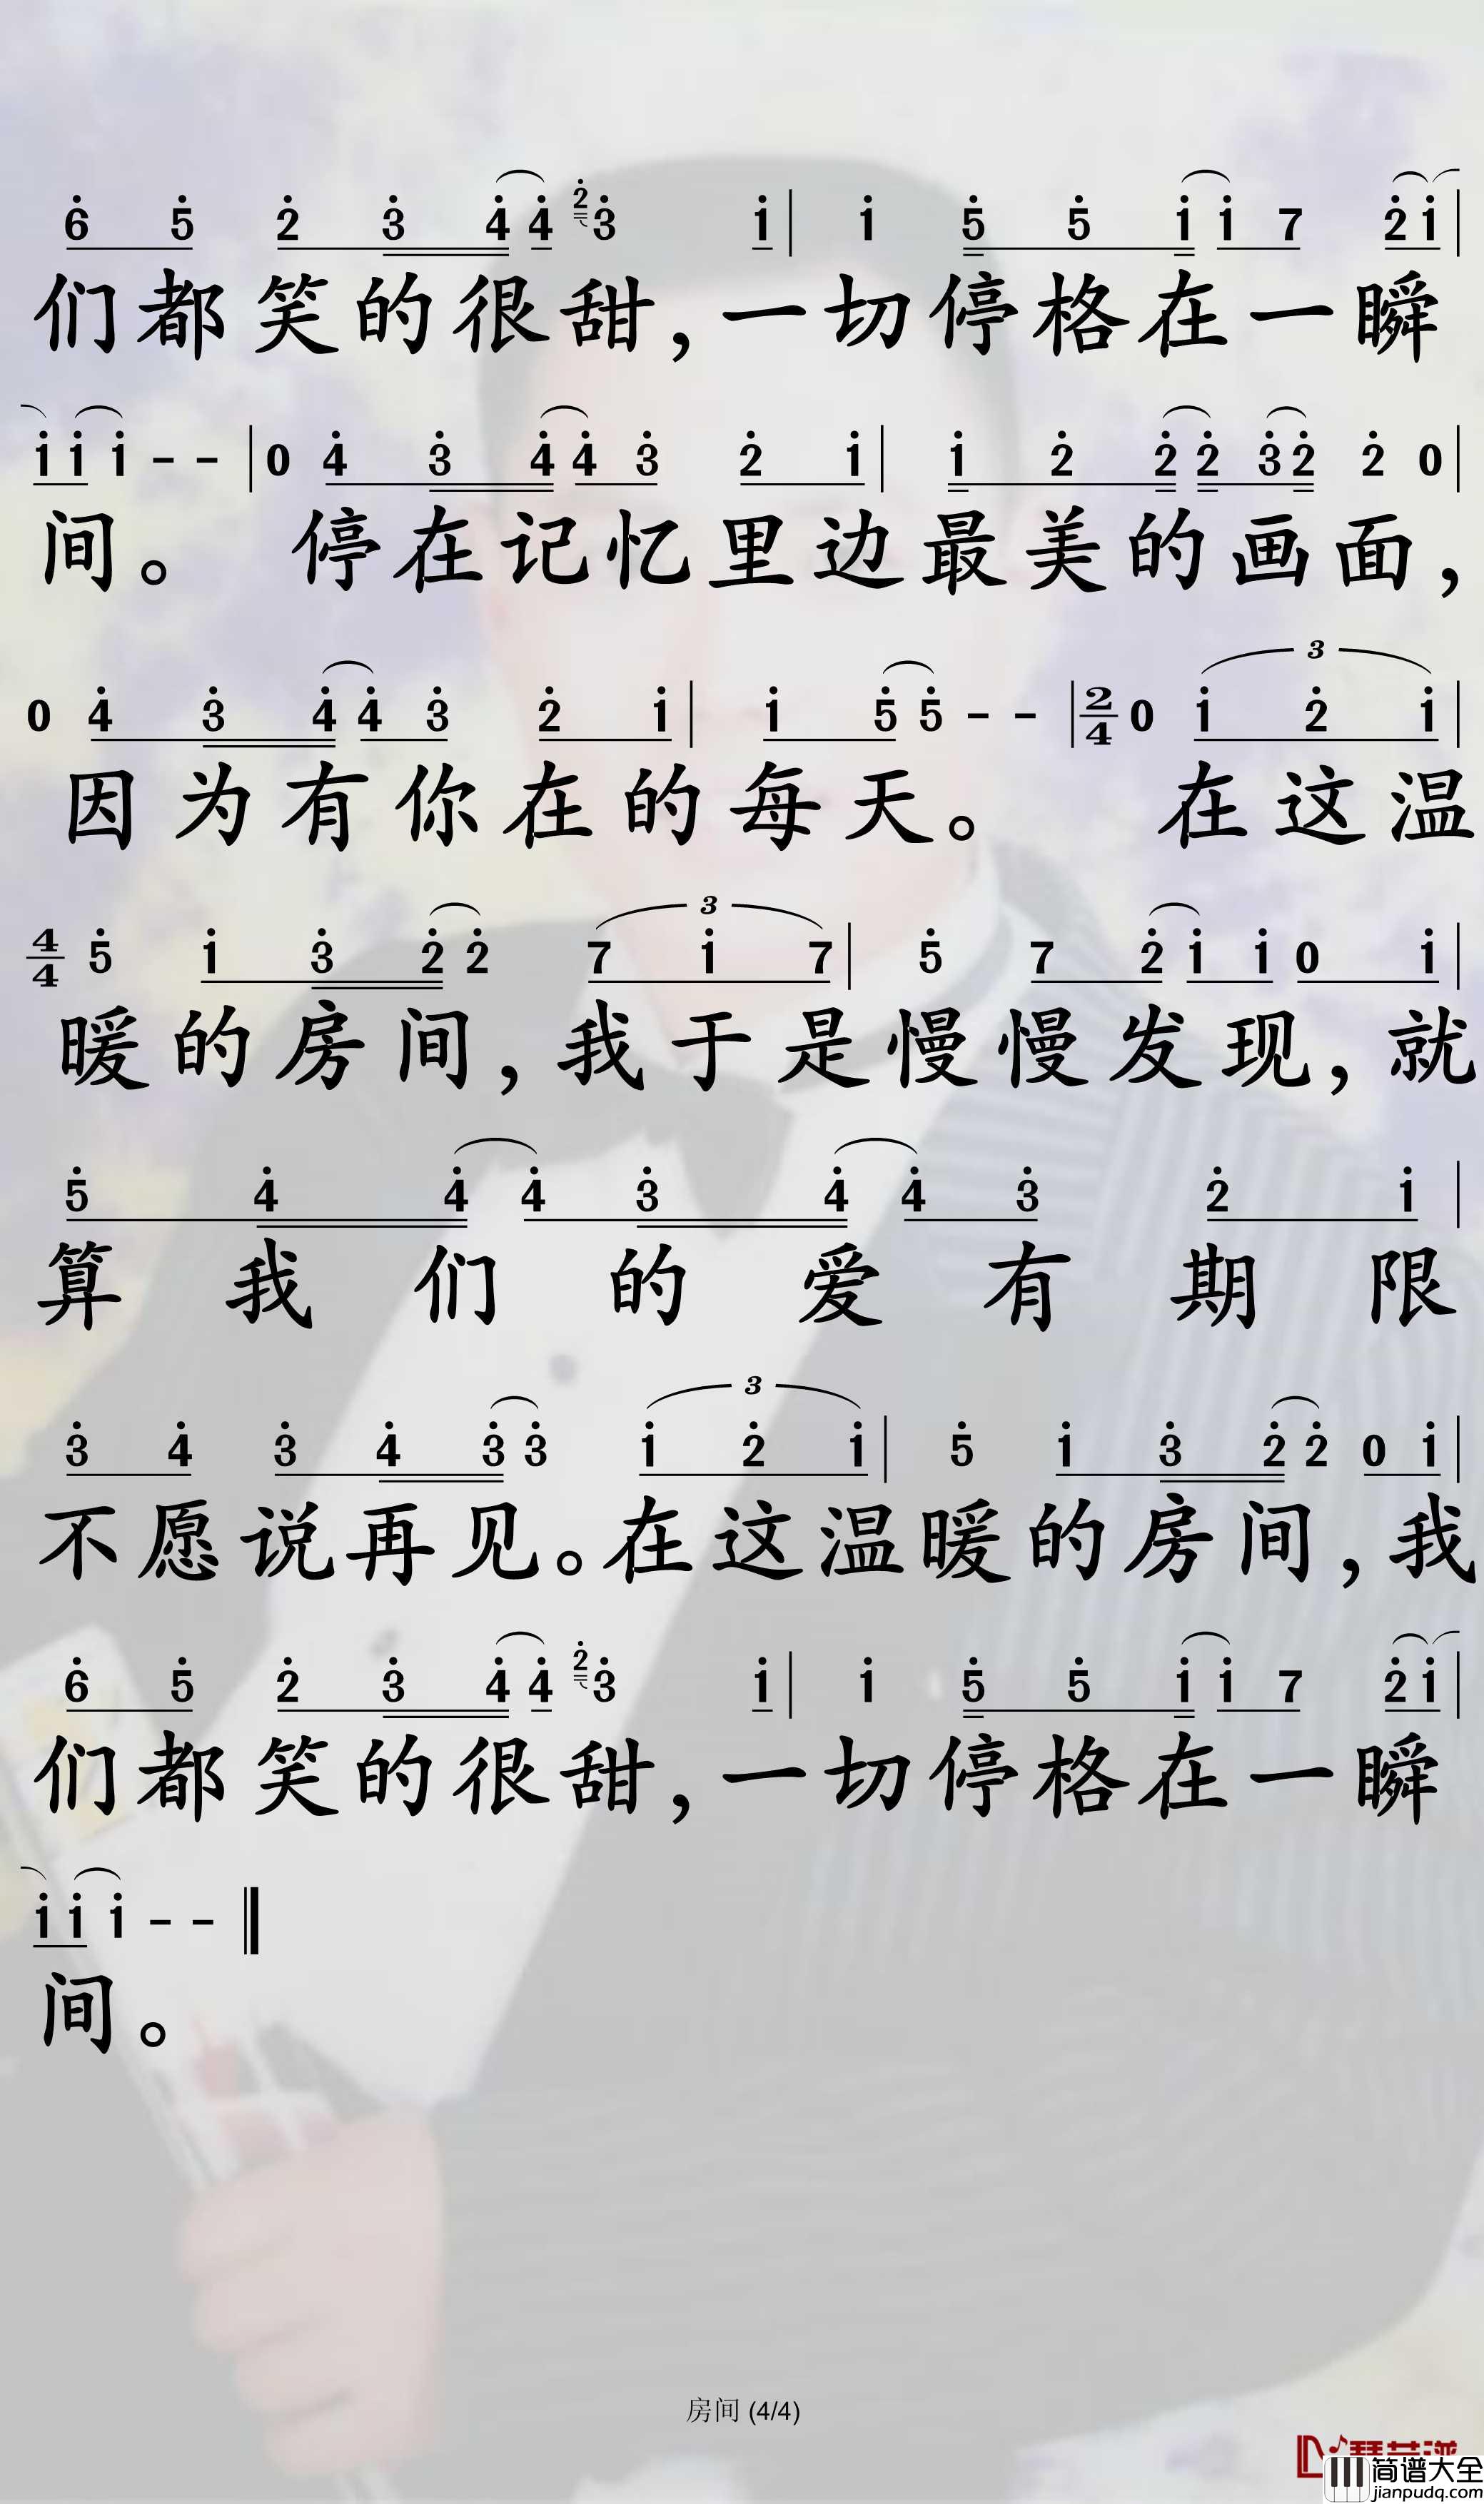 6 5 2 3 4 4 2 3 1 | 1 5 5 1 1 7 2 1 |
们都笑的很甜，一切停格在一瞬
1 1 1 - - | 0 4 3 4 4 3 2 1 | 1 2 2 2 3 2 2 0 |
间。 停在记忆里边最美的画面，
0 4 3 4 4 3 2 1 | 1 5 5 - - | 2/4 0 3 1 2 1 |
因为有你在的每天。 在这温
4/4 5 1 3 2 2 3 7 1 7 | 5 7 2 1 1 0 1 |
暖的房间，我于是慢慢发现，就
5 4 4 4 3 4 4 3 2 1 |
算我们的爱有期限
3 4 3 4 3 3 3 1 2 1 | 5 1 3 2 2 0 1 |
不愿说再见。在这温暖的房间，我
6 5 2 3 4 4 2 3 1 | 1 5 5 1 1 7 2 1 |
们都笑的很甜，一切停格在一瞬
1 1 1 - -
间。
房间 (4/4)
简谱大全
jianpudq.com